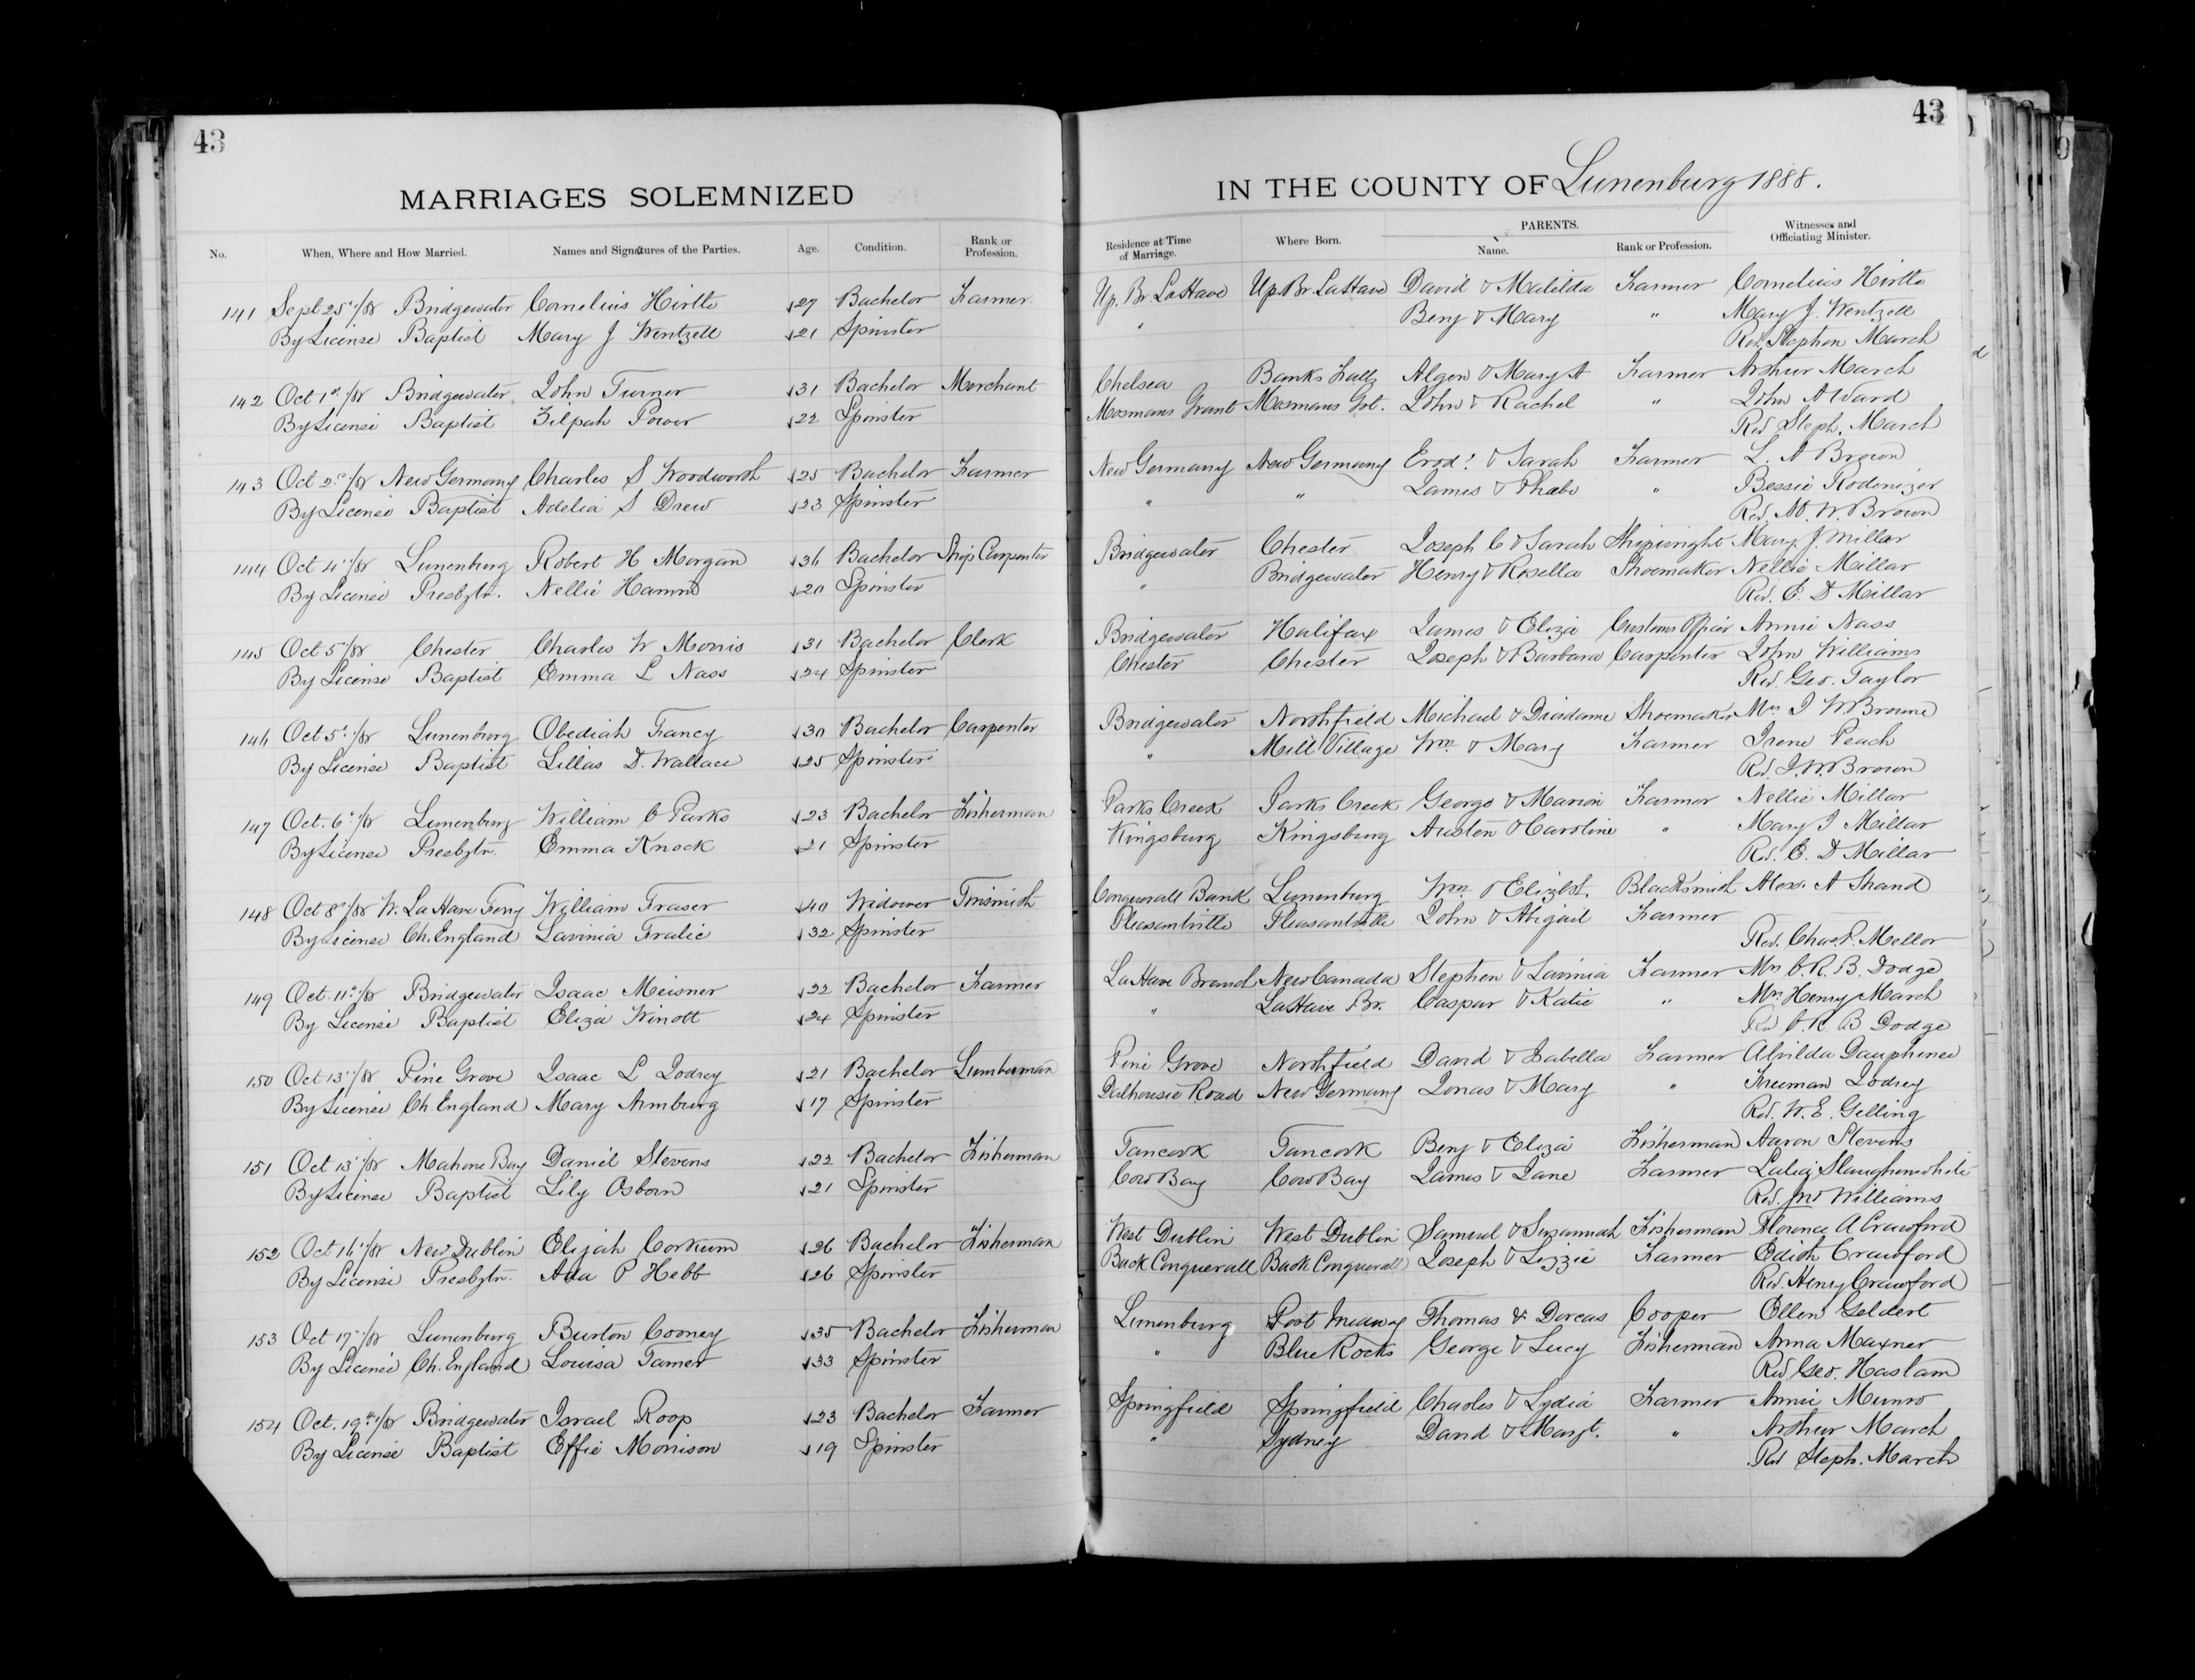 43
43
MARRIAGES SOLEMNIZED IN THE COUNTY OF Lunenburg 1888.
No. When, Where and How Married. Names and Signatures of the Parties. Age. Condition. Rank or Profession. Residence at Time of Marriage. Where Born. PARENTS. Name. Rank or Profession. Witnesses and Officiating Minister.
141 Sept 25th/88 Bridgewater Cornelius Hirtle 27 Bachelor Farmer Up. Br. LaHave Up. Br. LaHave David & Matilda Farmer Cornelius Hirtle
By License Baptist Mary J Wentzell 21 Spinster " Benj & Mary " Mary J. Wentzell
Rev. Stephen March
142 Oct 1st/88 Bridgewater John Turner 31 Bachelor Merchant Chelsea Banks Falls & Mary A Farmer Arthur March
By License Baptist Zilpah Power 22 Spinster Mosmans Grant Mosmans Grt. John & Rachel " John A Ward
Rev. Steph. March
143 Oct 2d/88 New Germany Charles S Woodworth 25 Bachelor Farmer New Germany New Germany & Sarah Farmer L. A Brown
By License Baptist Adelia S Drew 23 Spinster " " James & Phebe " Bessie Rodenizer
Rev. W. Brown
144 Oct 4th/88 Lunenburg Robert H Morgan 36 Bachelor Ship Carpenter Bridgewater Chester Joseph C & Sarah Shipwright Mary J. Millar
By License Presbytn. Nellie Hamm 20 Spinster " Bridgewater Henry & Rosella Shoemaker Nellie Millar
Rev. E. D Millar
145 Oct 5th/88 Chester Charles W Morris 31 Bachelor Clerk Bridgewater Halifax James & Eliza Customs Officer Annie Nass
By License Baptist Emma L Nass 24 Spinster Chester Chester Joseph & Barbara Carpenter John Williams
Rev. Geo. Taylor
146 Oct 5th/88 Lunenburg Obediah Francy 30 Bachelor Carpenter Bridgewater Northfield Michael & Diadame Shoemaker Mrs I W Browne
By License Baptist Lillas D. Wallace 25 Spinster " Mill Village Wm & Mary Farmer Irene Peach
Rev. I. W. Brown
147 Oct. 6th/88 Lunenburg William C Parks 23 Bachelor Fisherman Parks Creek Parks Creek George & Marion Farmer Nellie Millar
By License Presbytn. Emma Knock 21 Spinster Kingsburg Kingsburg Austen & Caroline " Mary I Millar
Rev. E. D Millar
148 Oct 8th/88 W. LaHave Ferry William Fraser 40 Widower Tinsmith Conquerall Bank Lunenburg Wm & Elizbt. Blacksmith Alex. A Shand
By License Ch. England Lavinia Fralic 32 Spinster Pleasantville Pleasantville John & Abigail Farmer
Rev. Chas. P. Mellor
149 Oct. 11th/88 Bridgewater Isaac Meisner 22 Bachelor Farmer LaHave Branch New Canada Stephen & Lavinia Farmer Mrs C. R. B. Dodge
By License Baptist Eliza Winott 24 Spinster " LaHave Br. Caspar & Katie " Mrs Henry March
Rev C. R. B Dodge
150 Oct 13th/88 Pine Grove Isaac L Lodrey 21 Bachelor Lumberman Pine Grove Northfield David & Isabella Farmer Alvilda Dauphinee
By License Ch. England Mary Armburg 17 Spinster Dalhousie Road New Germany Jonas & Mary " Freeman Lodrey
Rev. W. E. Gelling
151 Oct 13th/88 Mahone Bay Daniel Stevens 22 Bachelor Fisherman Tancook Tancook Benj & Eliza Fisherman Aaron Stevens
By License Baptist Lily Osborn 21 Spinster Cow Bay Cow Bay James & Jane Farmer Slaughenwhite
Rev. Jno Williams
152 Oct 16th/88 New Dublin Elijah Corkum 26 Bachelor Fisherman West Dublin West Dublin Samuel & Susannah Fisherman Florence A Crawford
By License Presbytn. Ada P Hebb 26 Spinster Back Conquerall Back Conquerall Joseph & Lizzie Farmer Edith Crawford
Rev. Henry Crawford
153 Oct 17th/88 Lunenburg Burton Cooney 35 Bachelor Fisherman Lunenburg Port Medway Thomas & Dorcas Cooper Ellen Geldert
By License Ch. England Louisa Tanner 33 Spinster " Blue Rocks George & Lucy Fisherman Anna Maxner
Rev. Geo. Haslam
154 Oct. 19th/88 Bridgewater Israel Roop 23 Bachelor Farmer Springfield Springfield Charles & Lydia Farmer Annie Munro
By License Baptist Effie Morrison 19 Spinster " Sydney David & Margt. " Arthur March
Rev Steph. March